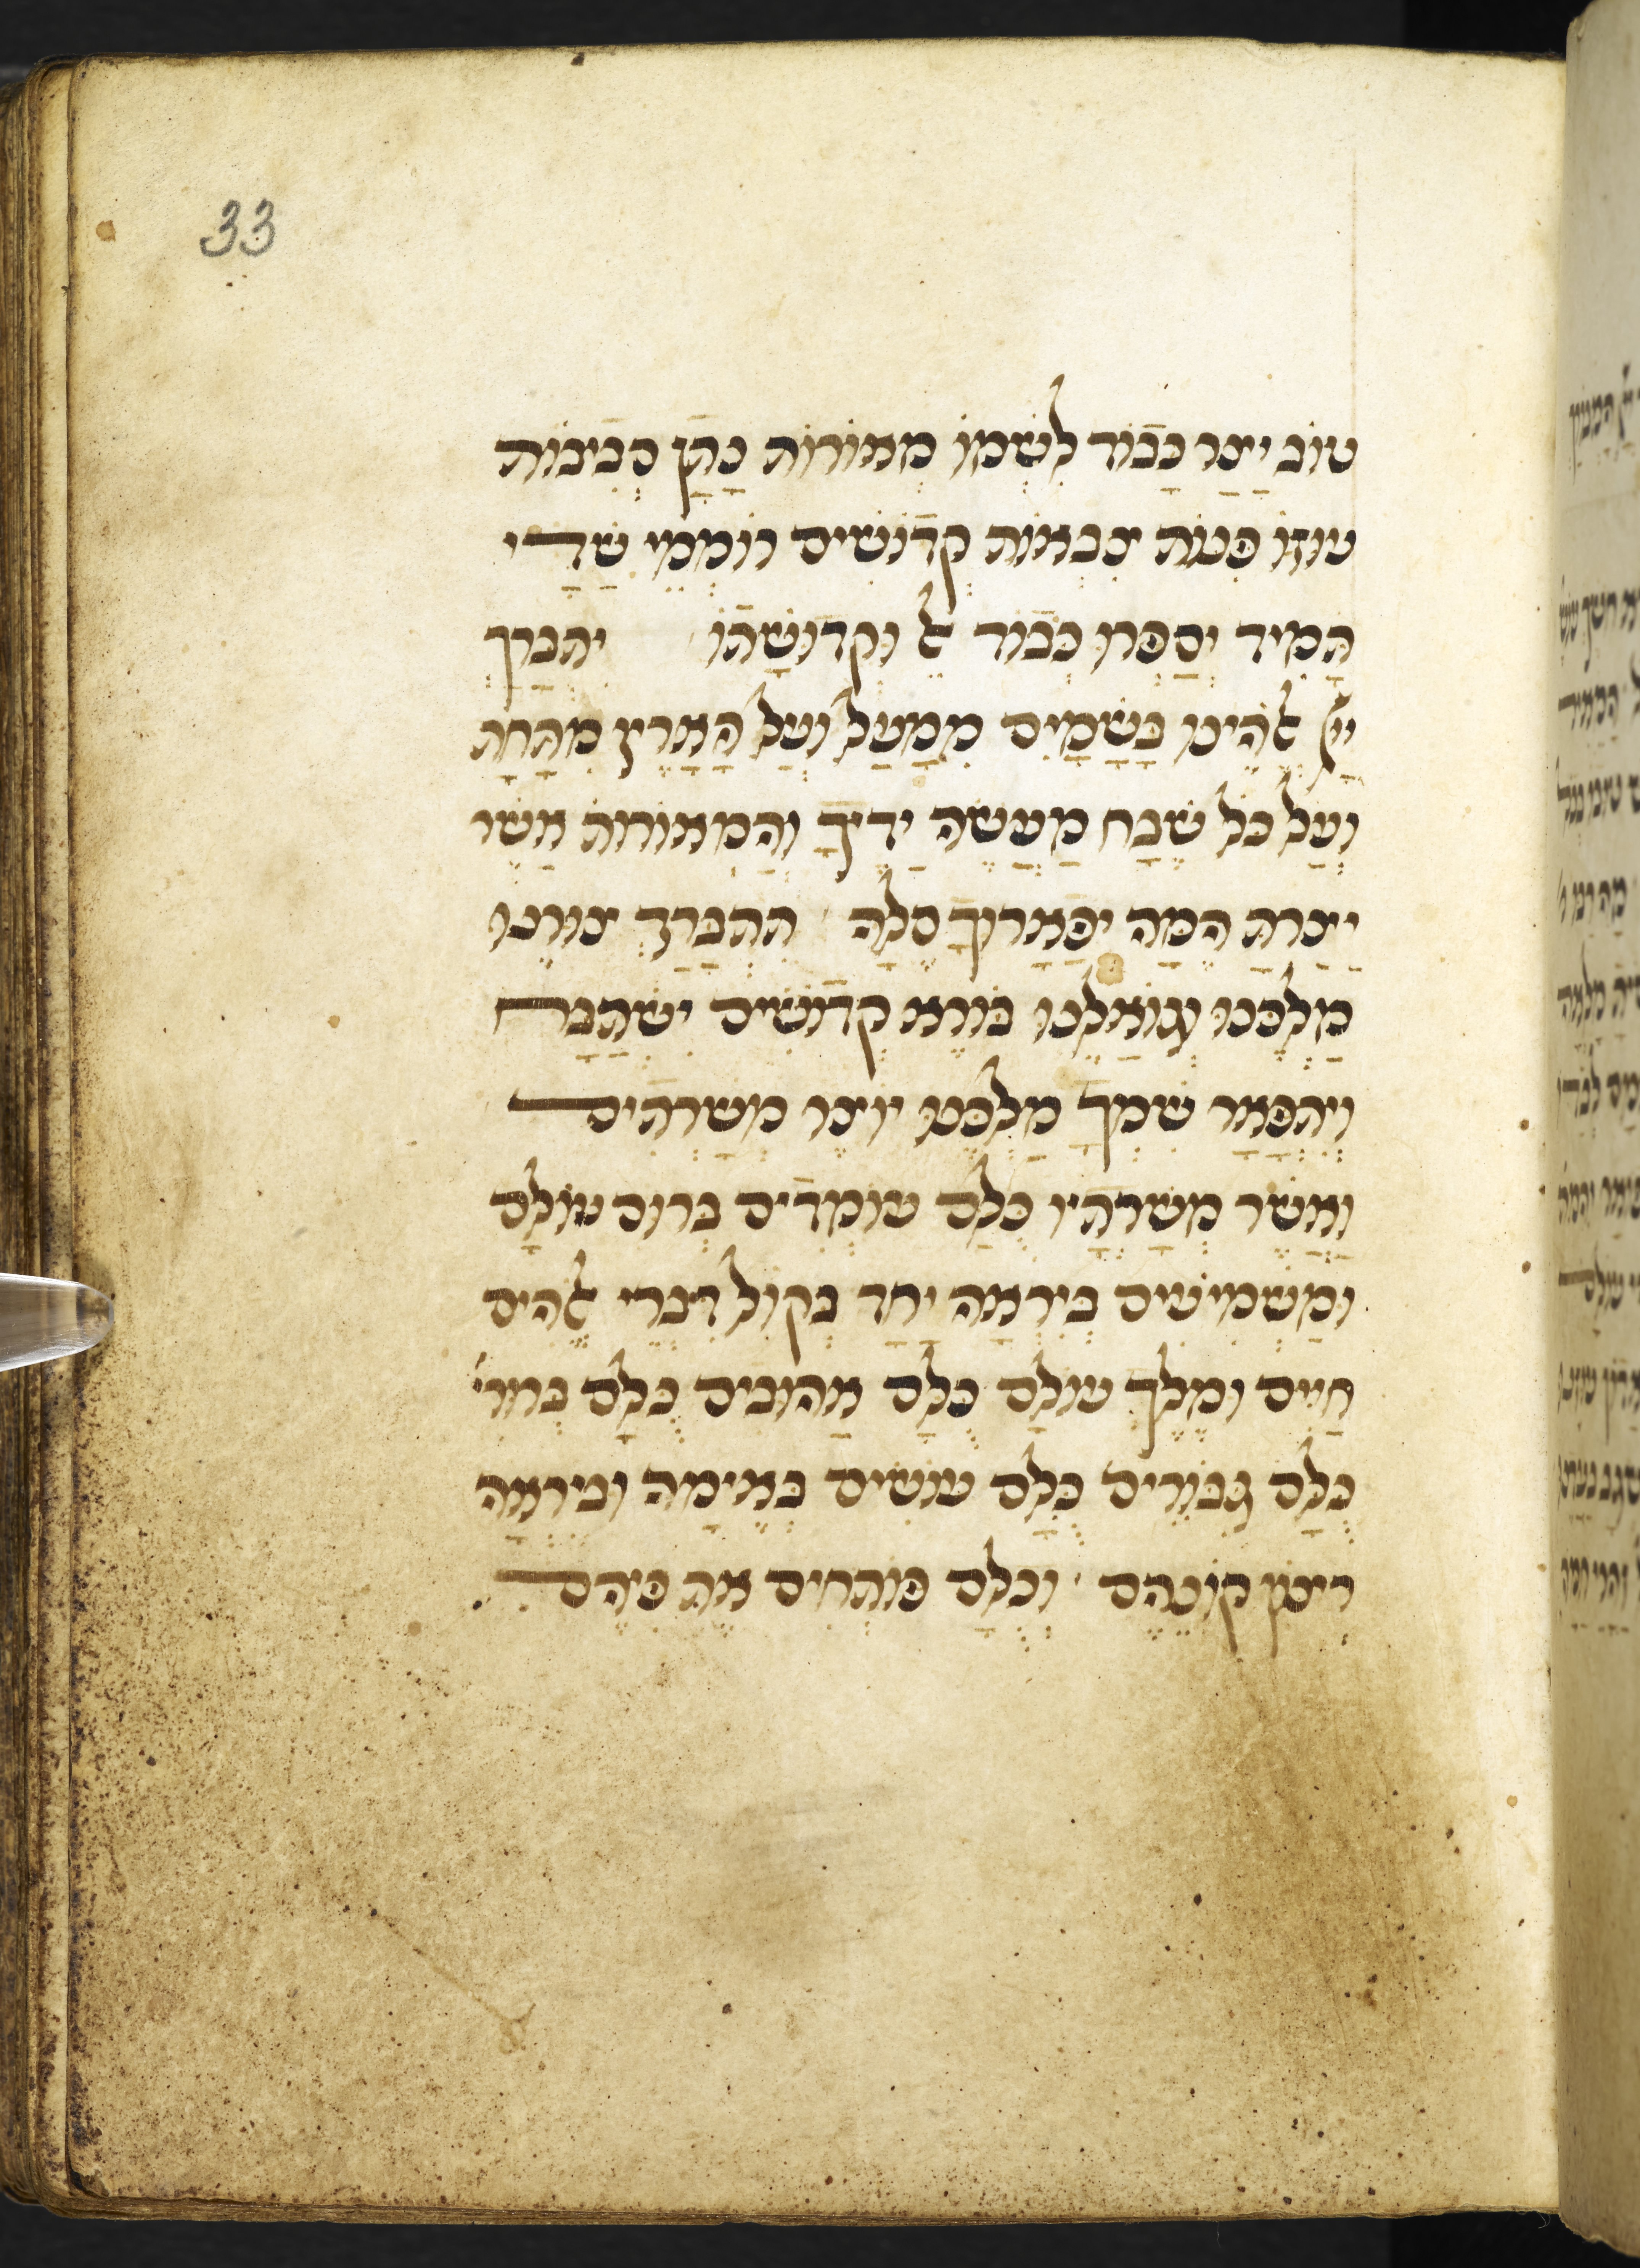 33
טוֹב יָצַר כָּבוֹד לִשְׁמוֹ מְאוֹרוֹת נָתַן סְבִיבוֹת
עוזו פִּנּוֹת צִבְאוֹת קְדוֹשִׁים רוֹמְמֵי שַׁדַּי
תָּמִיד יְסַפְּרוּ כְּבוֹד אֵל וּקְדוּשָׁתוֹ יִתְבָּרַךְ
יְיָ אֱלֹהֵינוּ בַּשָּׁמַיִם מִמַּעַל וְעַל הָאָרֶץ מִתָּחַת
וְעַל כֹּל שֶׁבַח מַעֲשֵׂה יָדֶיךָ וְהַמְאוֹרוֹת אֲשֶׁר
יָצַרְתָּ הֵמָּה יְפָאֲרוּךָ סֶלָה תִּתְבָּרַךְ צוּרֵנוּ
מַלְכֵּנוּ וְגוֹאֲלֵנוּ בּוֹרֵא קְדוֹשִׁים יִשְׁתַּבַּח
וְיִתְפָּאַר שִׁמְךָ מַלְכֵּנוּ יוֹצֵר מְשָׁרְתִים
וַאֲשֶׁר מְשָׁרְתָיו כֻּלָּם עוֹמְדִים בְּרוּם עוֹלָם
וּמַשְׁמִישִׁים בְּיִרְאָה יַחַד בְּקוֹל דִּבְרֵי אֱלֹהִים
חַיִּים וּמֶלֶךְ עוֹלָם כֻּלָּם אֲהוּבִים כֻּלָּם בְּרוּרִי׳
כֻּלָּם גִּבּוֹרִים כֻּלָּם עוֹשִׂים בְּאֵימָה וּבְיִרְאָה
רְצוֹן קוֹנֵיהֶם וְכֻלָּם פּוֹתְחִים אֶת פִּיהֶם